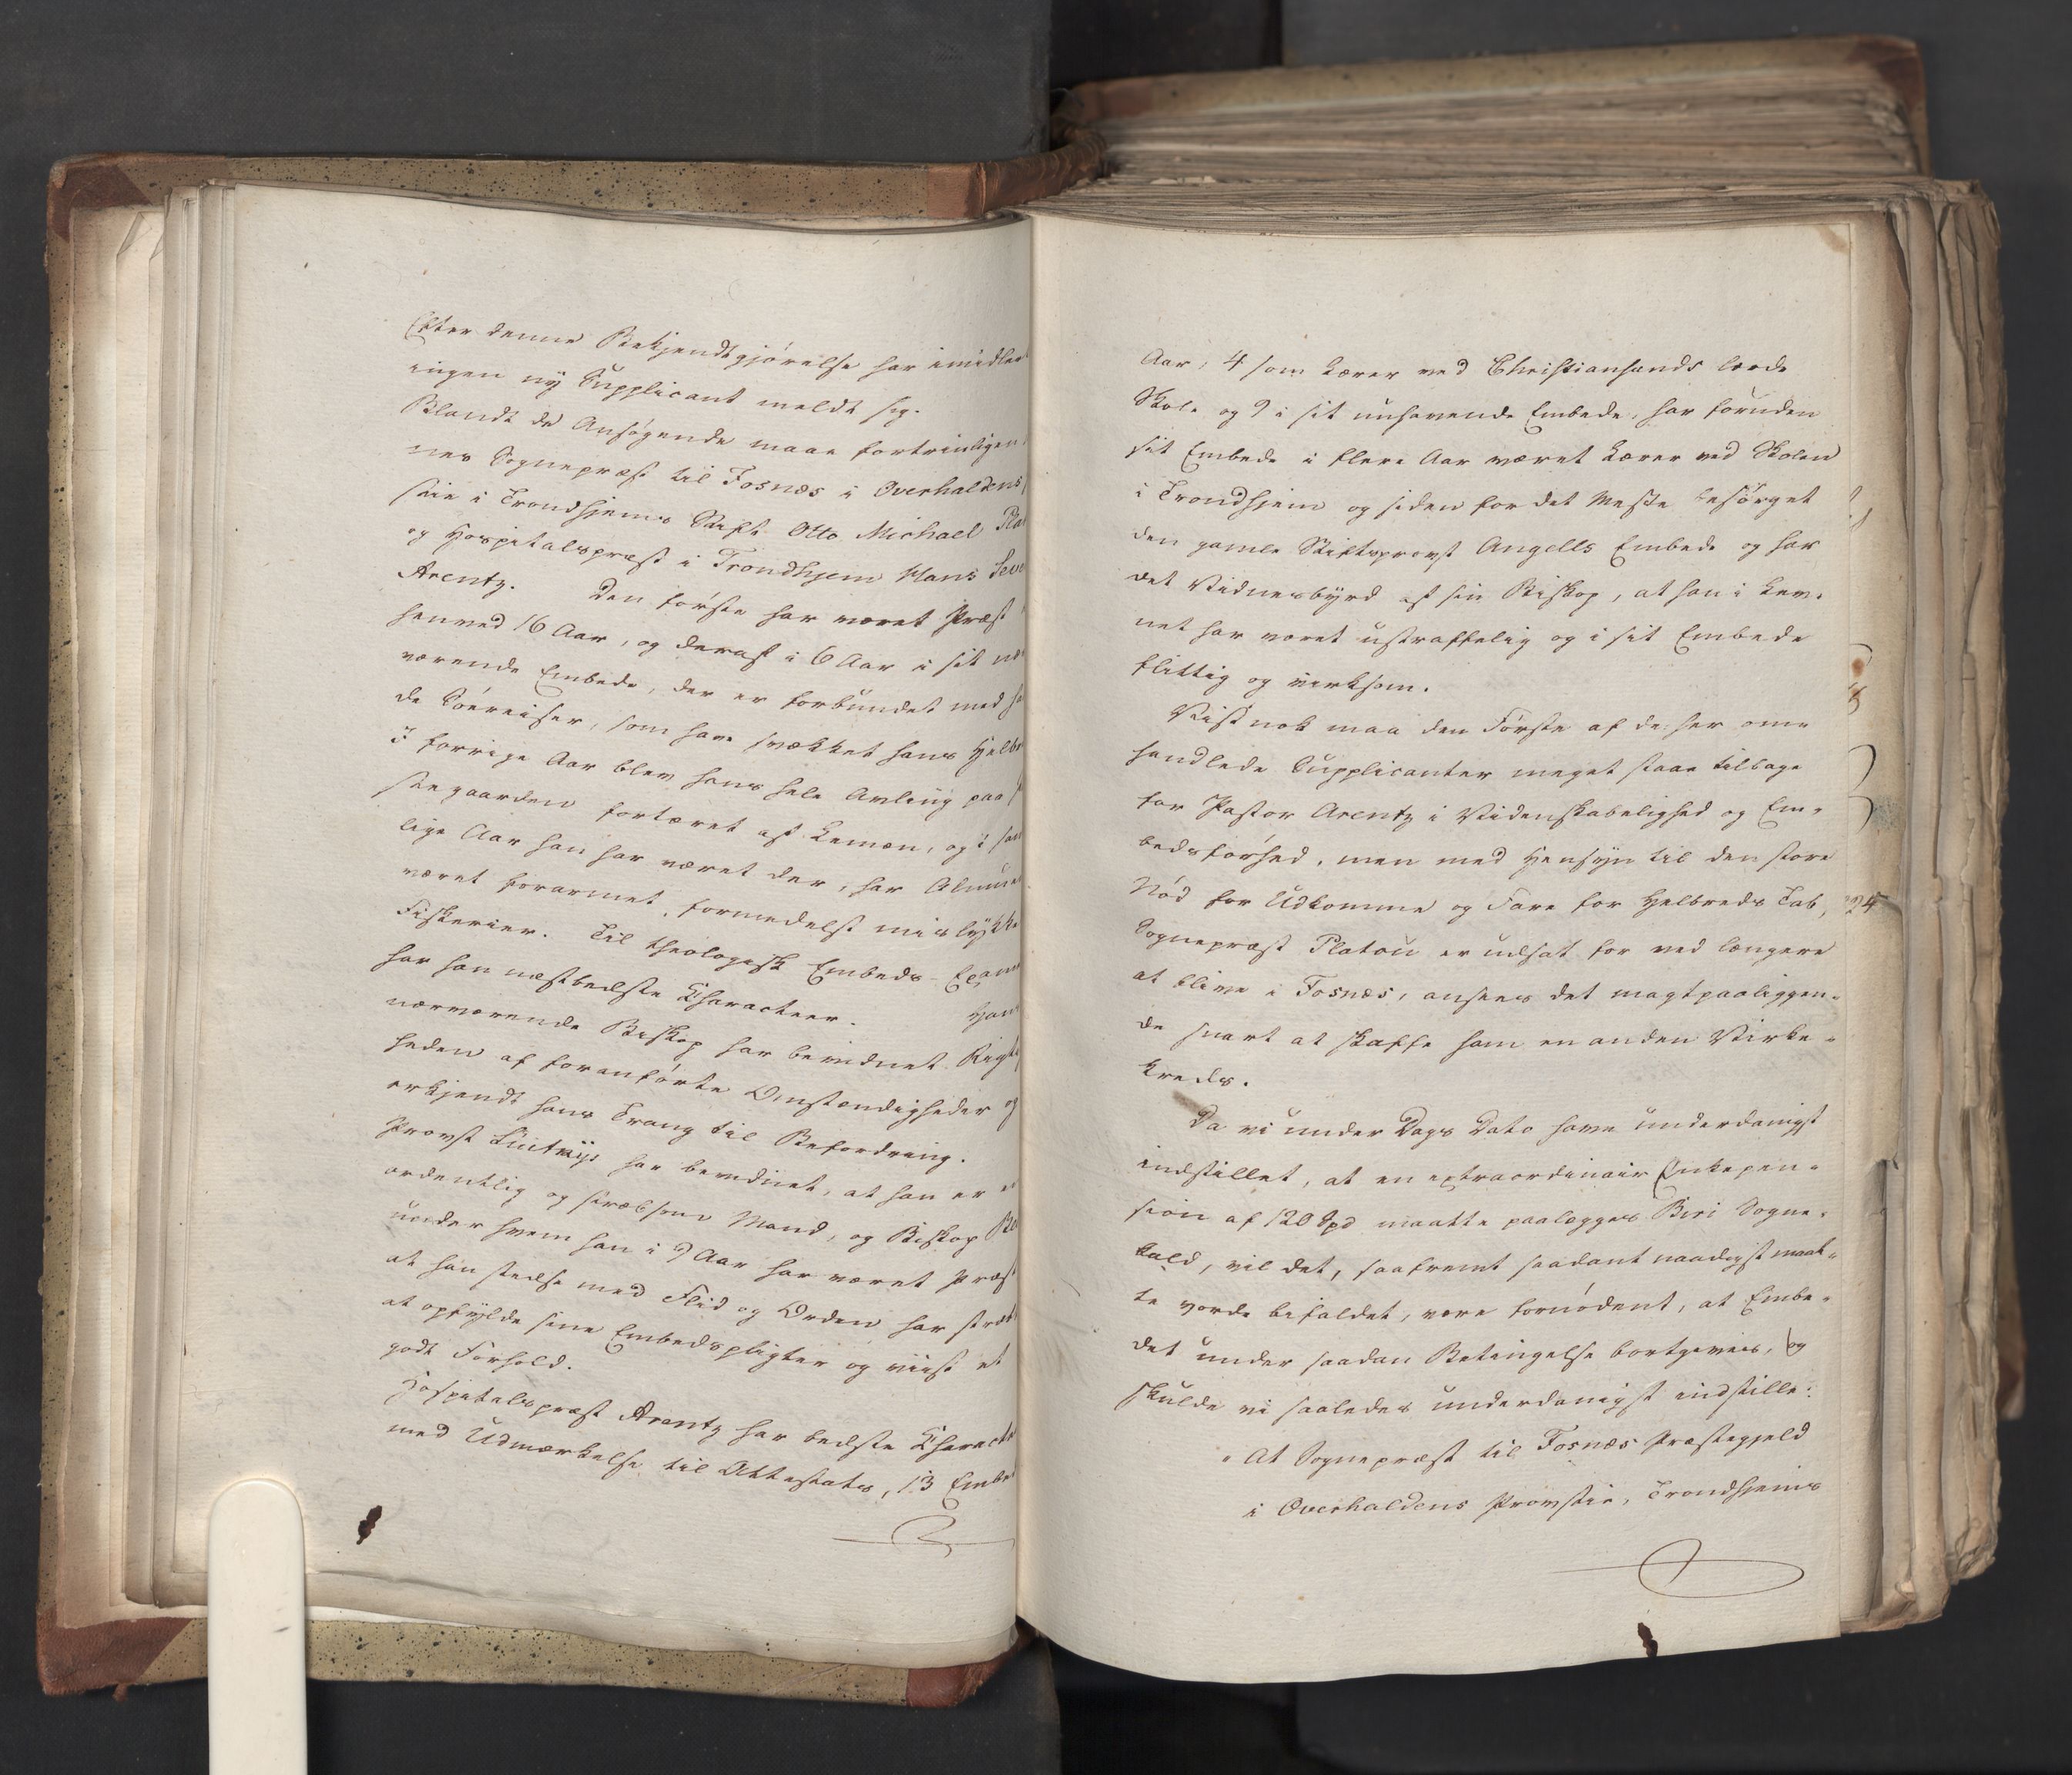 Efter denne Bekjendtgjørelse har imidler
ingen ny Supplicant meldt sig.
Blandt de Ansøgende maae fortrinligen
nes Sognepræst til Fosnæs i Overhaldens
stie i Trondhjems Stift Otto Michael Pla
og Hospitalspræst i Trondhjem Hans Seve
Arentz. Den første har været Præst
henved 16 Aar, og deraf i 6 Aar i sit næ
værende Embede, der er forbundet med
de Søereiser, som have svækket hans Helbr
I forrige Aar blev hans hele Avling paa
stegaarden fortæret af Lemæn, og i sam
lige Aar han har været der, har Almue
været forarmet, formedelst mislykke
Fiskerier. Til theologisk Embeds-Exam
har han næstbedste Characteer. Han
nærværende Biskop har bevidnet Rigt
heden af foranførte Omstændigheder og
erkjendt hans Trang til Befordring.
Provst har bevidnet, at han er
ordentlig og stræbsom Mand, og Biskop
under hvem han i 9 Aar har været Præst
at han stedse med Flid og Orden har stræb
at opfylde sine Embedspligter og viist et
godt Forhold.
Hospitalspræst Arentz har bedste Charact
med Udmærkelse til Attestats, 13 Embe
Aar; 4 som Lærer ved Christiansands lærde
Skole og 9 i sit nuhavende Embede, har foruden
sit Embede i flere Aar været Lærer ved Skolen
i Trondhjem og siden for det Meste besørget
den gamle Stiftsprovst Angells Embede og har
det Vidnesbyrd af sin Biskop, at han i Lev-
net har været ustraffelig og i sit Embede
flittig og virksom.
Vistnok maa den Første af de her om-
handlede Supplicanter meget staae tilbage
for Pastor Arentz i Videnskabelighed og Em-
bedsførhed, men med Hensyn til den store
Nød for Udkomme og Fare for Helbreds Tab,
Sognepræst Platou er udsat for ved længere
at blive i Fosnæs, ansees det magtpaaliggen-
de snart at skaffe ham en anden Virke-
kreds.
Da vi under Dags Dato have underdanigst
indstillet, at en extraordinair Enkepen-
sion af 120 Spd maatte paalægges Biri Sogne-
kald, vil det, saafremt saadant naadigst maat-
te vorde bifaldet, være fornødent, at Embe-
det under saadan Betingelse bortgives, og
skulde vi saaledes underdanigst indstille:
"At Sognepræst til Fosnæs Præstegjeld
i Overhaldens Provstie, Trondhjems